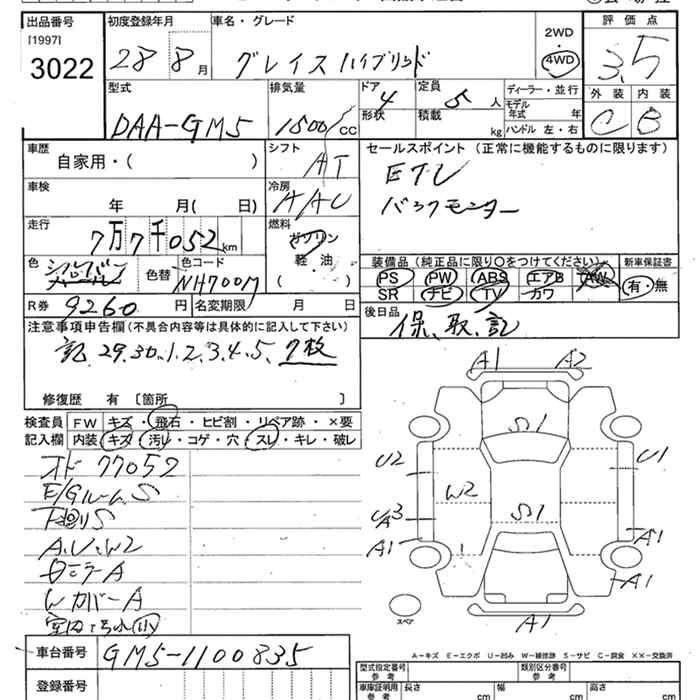 出品番号 初度登録年月 車名・グレード 評価点
[1997]
3022
28 8月 グレイス ハイブリッド 2WD 4WD 3.5
型式 排気量 ドア 定員 ディーラー・並行 外装 内装
DAA-GM5 1500 CC 4 5人 モデル年式 年 C B
形状 積載 kg ハンドル 左・右
車歴 シフト セールスポイント (正常に機能するものに限ります)
自家用・( ) AT ETC
車検 冷房 バックモニター
年 月( 日) AAC
走行 燃料
7万7千052km ガソリン
軽油
( )
色 シルバー 色替 色コード NH700M
装備品 (純正品に限り○をつけてください) 新車保証書
PS PW ABS エアB AW 有・無
SR ナビ TV カワ
R券 9260円 名変期限 月 日
後日品 保、取、記
注意事項申告欄(不具合内容等は具体的に記入して下さい)
記 29.30.1.2.3.4.5. 7枚
修復歴 有 [箇所 ]
検査員記入欄 FW キズ・飛石・ヒビ割・リペア跡・×要
内装 キズ・汚レ・コゲ・穴・スレ・キレ・破レ
オド 77052
E/Gルーム S
下廻り S
A.U.W2
A
Wカバー A
室内
A1 A2
S1
U2 U1
W2
S1
A3
A1 A1
A1
A1
スペア
A-キズ E-エクボ U-凹み W-補修跡 S-サビ C-腐食 ××-交換済
車台番号 GM5-1100835
登録番号
型式指定番号 参考 類別区分番号 参考
車庫証明用 参考 長さ cm 幅 cm 高さ cm